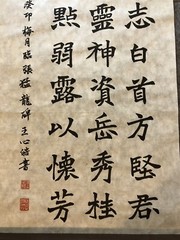 志白首方堅君
靈神資岳秀桂
點弱露以懷芳
癸卯梅月臨張猛龍碑王心書